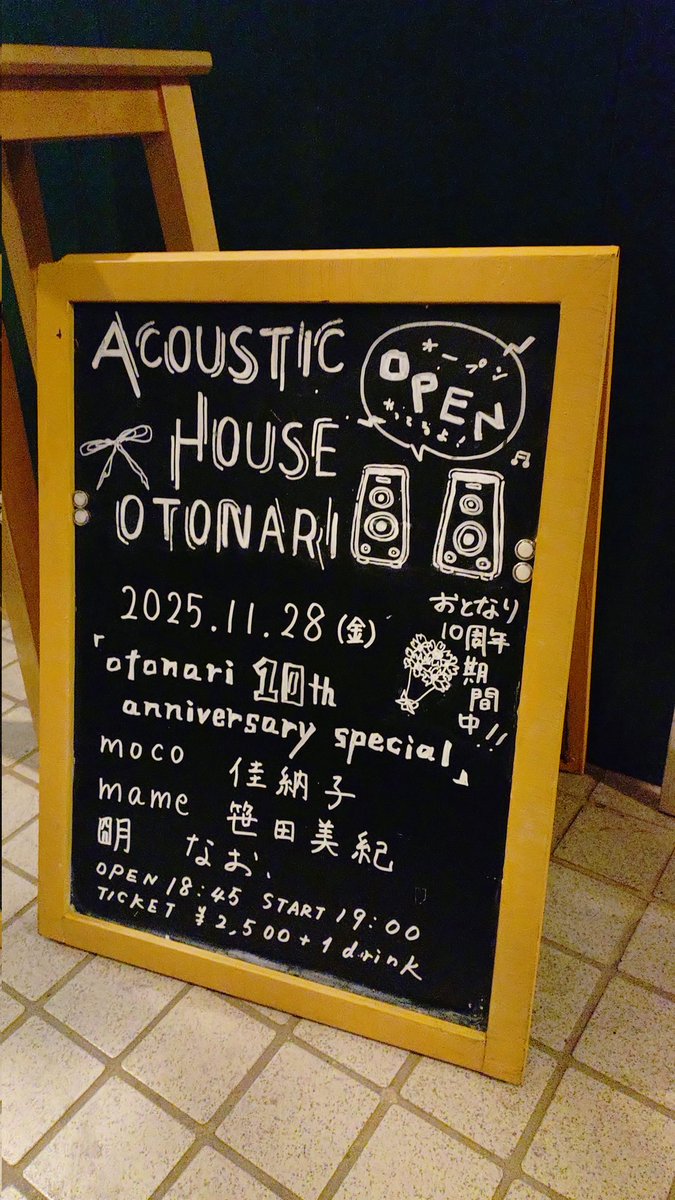 ACOUSTIC
HOUSE
OTONARI
オープン
OPEN
してるよ!
2025.11.28(金)
おとなり
10周年
期
間
中!!
「otonari 10th
anniversary special」
moco 佳納子
mame 笹田美紀
朙 なお、
OPEN 18:45 START 19:00
TICKET ¥2,500+1drink